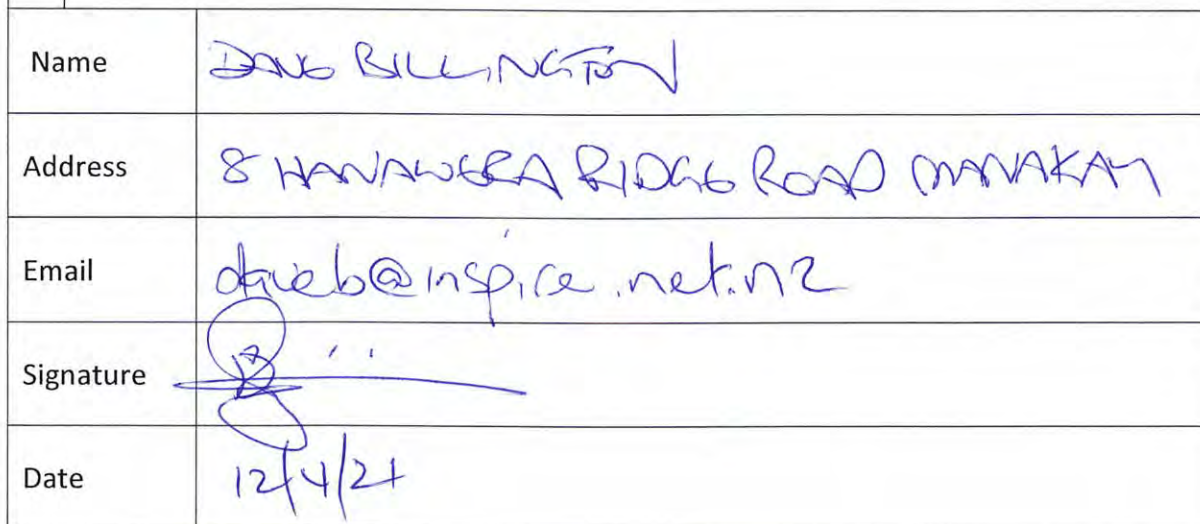 Name DAVE BILLINGTON
Address 8 HANAWERA RIDGE ROAD MANAKAU
Email daveb@inspire.net.nz
Signature
Date 12/4/21